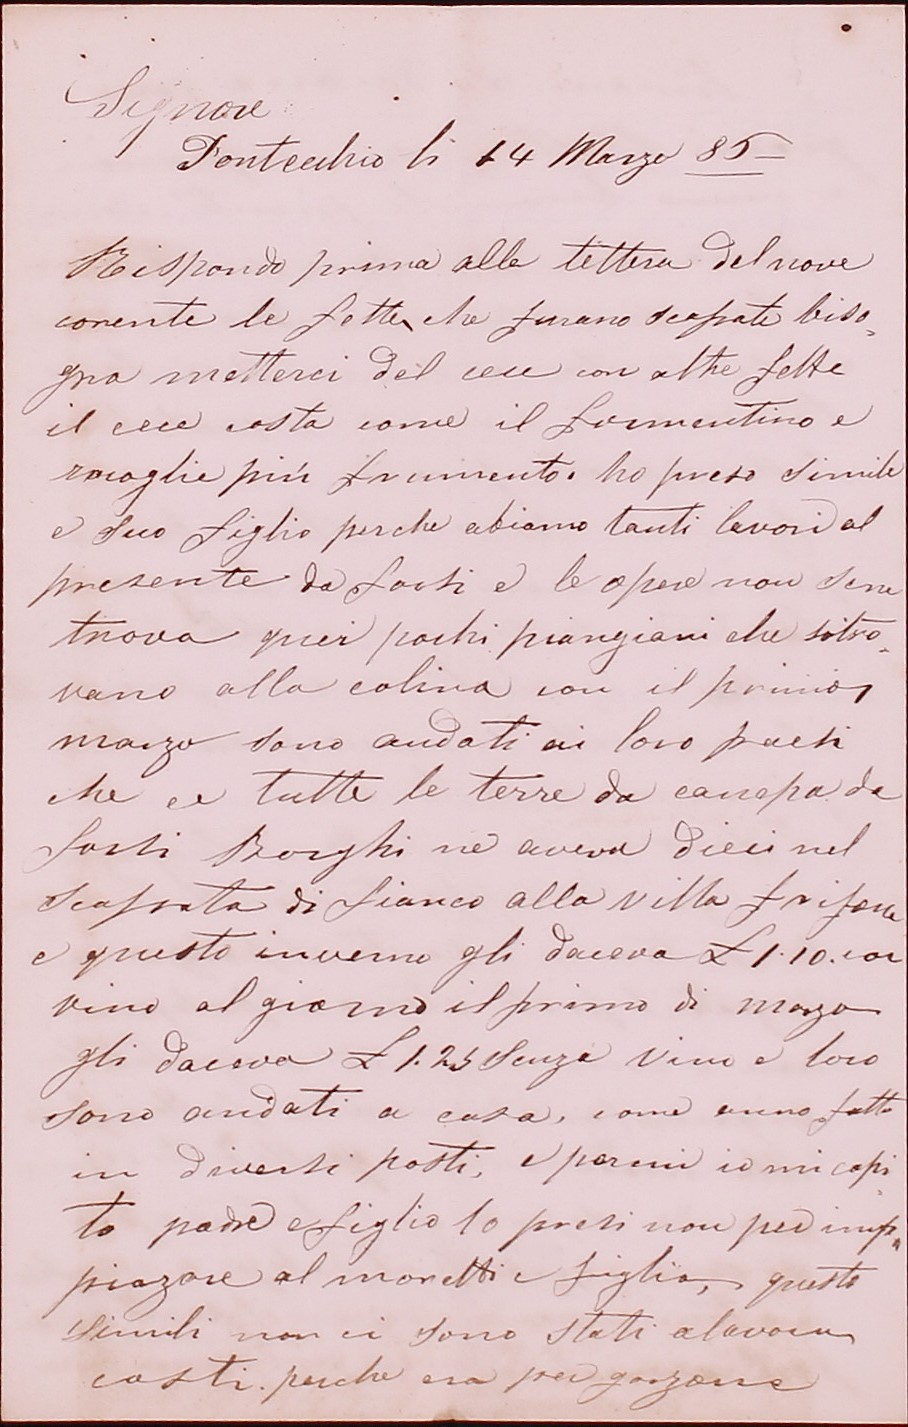 Signore
Pontecchio li 14 Marzo 85
Rispondo prima alla lettera del nove
corente le fette che furano scassate biso=
gna metterci del cece con altre fette
il cece costa come il formentino e
racoglie più frumento. ho preso Simili
e suo figlio perche abiamo tanti lavori al
presente da farsi e le opere non sene
trova quei pochi piangiani che sitro=
vano alla colina con il primo,
marzo sono andati ai loro paesi
che ce tutte le terre da canepa da
farsi Borghi ne aveva dieci nel
scassata di fianco alla villa
e questo inverno gli daceva £ 1.10. con
vino al giorno il primo di marzo
gli daceva £ 1.25 Senza vino e loro
sono andati a casa, come anno fatto
in diversi posti, e parmi io mi capi
to padre e figlio lo presi non per imp=
piazare al moretti e figlio, questo
Simili non ci sono stati alavorare
costi. perche era per garzone